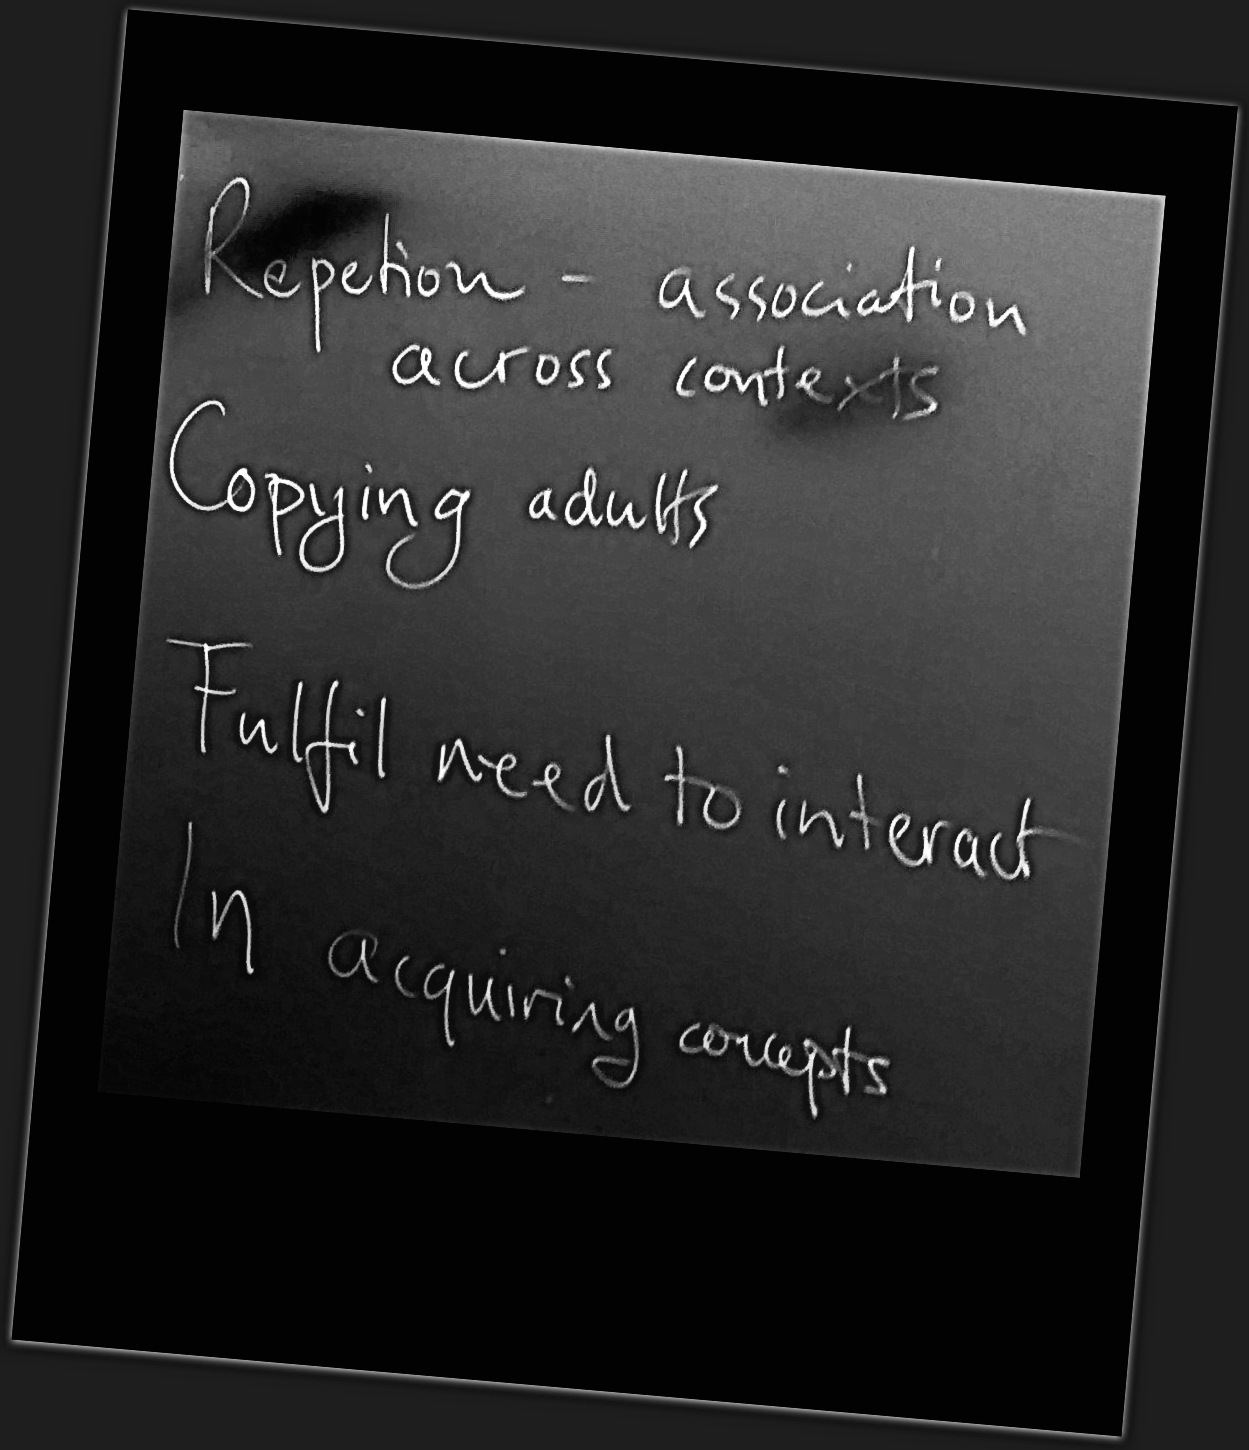 Repetion - association
across contexts
Copying adults
Fulfil need to interact
In acquiring concepts